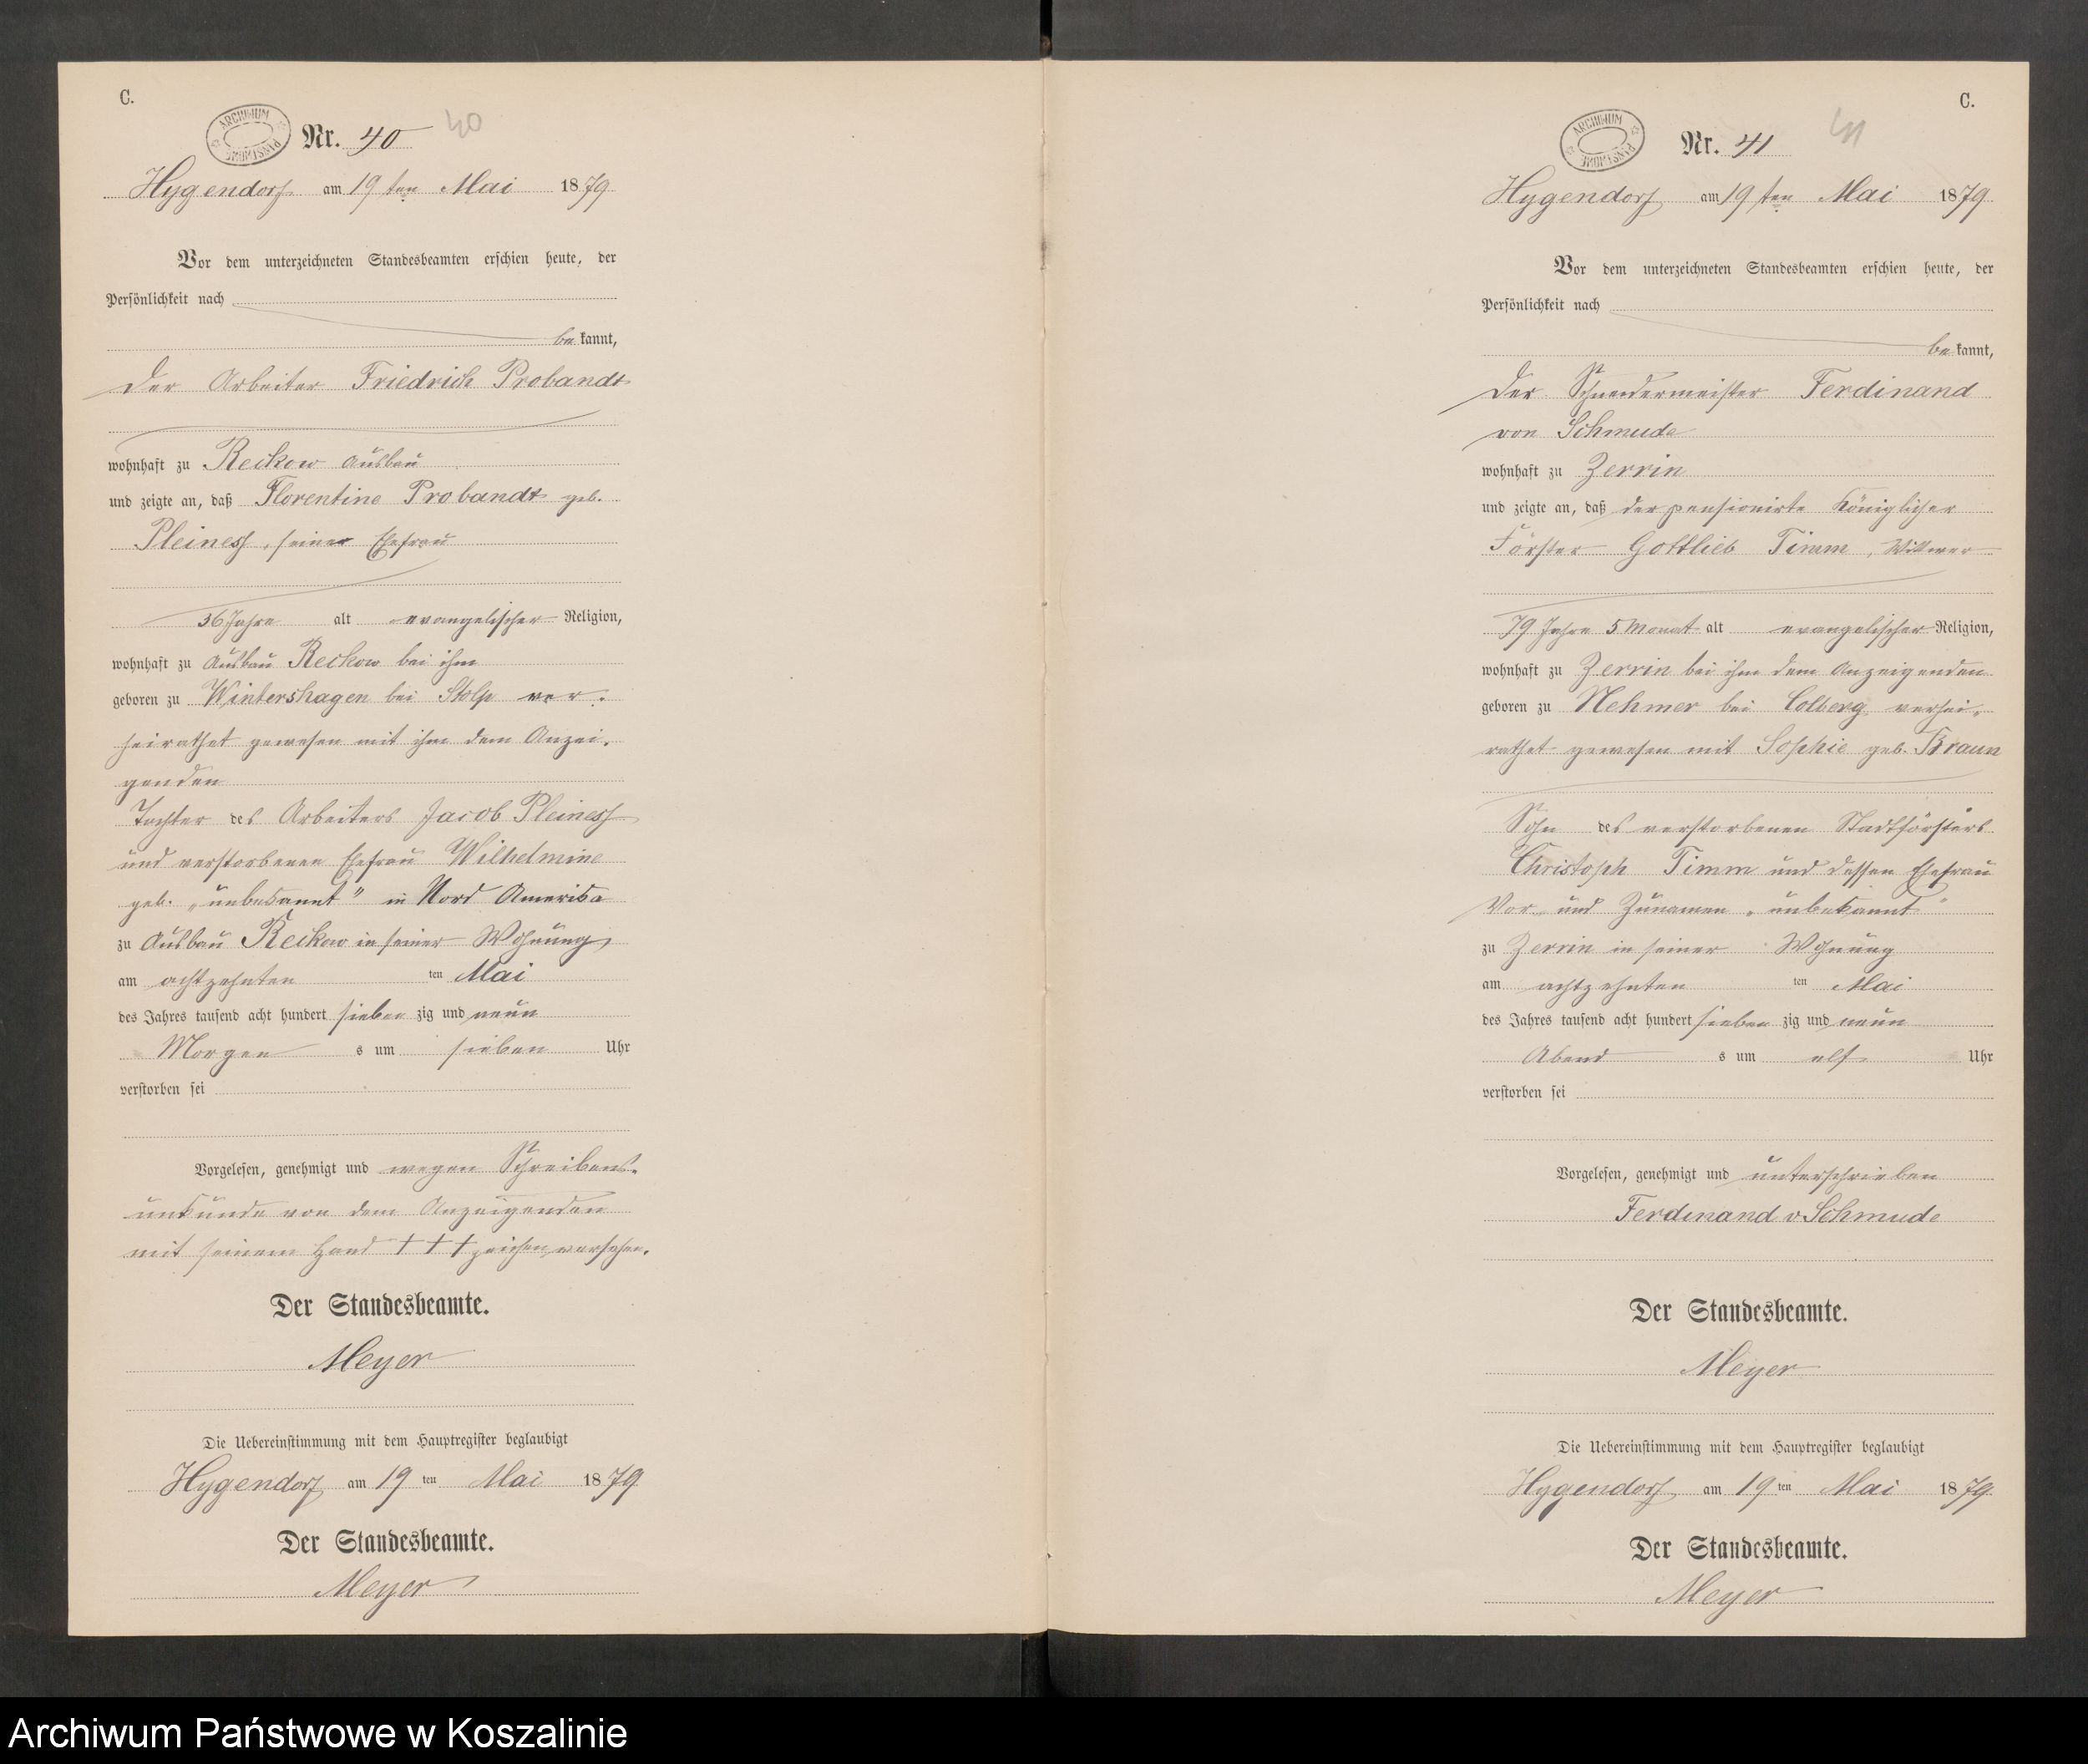 C.
ARCHIWUM PAŃSTWOWE
Nr. 40
40
Hygendorf am 19 ten Mai 1879
Vor dem unterzeichneten Standesbeamten erschien heute, der
Persönlichkeit nach
bekannt,
der Arbeiter Friedrich Probandt
wohnhaft zu Reckow Ausbau
und zeigte an, daß Florentine Probandt geb.
Pleiness, seiner Ehefrau
36 Jahre alt evangelischer Religion,
wohnhaft zu Ausbau Reckow bei ihm
geboren zu Wintershagen bei Stolp ver-
heirathet gewesen mit ihm dem Anzei-
genden
Tochter des Arbeiters Jacob Pleiness
und verstorbenen Ehefrau Wilhelmine
geb. „unbekannt" in Nord Amerika
zu Ausbau Reckow in seiner Wohnung
am achtzehnten ten Mai
des Jahres tausend acht hundert sieben zig und neun
Morgen s um sieben Uhr
verstorben sei
Vorgelesen, genehmigt und wegen Schreibens-
unkunde von dem Anzeigenden
mit seinem Hand + + + zeichen versehen.
Der Standesbeamte.
Meyer
Die Uebereinstimmung mit dem Hauptregister beglaubigt
Hygendorf am 19 ten Mai 1879
Der Standesbeamte.
Meyer
C.
ARCHIWUM PAŃSTWOWE
Nr. 41
41
Hygendorf am 19 ten Mai 1879
Vor dem unterzeichneten Standesbeamten erschien heute, der
Persönlichkeit nach
bekannt,
der Schneidermeister Ferdinand
von Schmude
wohnhaft zu Zerrin
und zeigte an, daß der pensionirte Königlicher
Förster Gottlieb Timm, Wittwer
79 Jahre 5 Monat alt evangelischer Religion,
wohnhaft zu Zerrin bei ihm dem Anzeigenden
geboren zu Nehmer bei Colberg verhei-
rathet gewesen mit Sophie geb. Braun
Sohn des verstorbenen Stadtförsters
Christoph Timm und dessen Ehefrau
Vor- und Zunamen „unbekannt"
zu Zerrin in seiner Wohnung
am achtzehnten ten Mai
des Jahres tausend acht hundert sieben zig und neun
Abend s um elf Uhr
verstorben sei
Vorgelesen, genehmigt und unterschrieben
Ferdinand v Schmude
Der Standesbeamte.
Meyer
Die Uebereinstimmung mit dem Hauptregister beglaubigt
Hygendorf am 19 ten Mai 1879
Der Standesbeamte.
Meyer
Archiwum Państwowe w Koszalinie